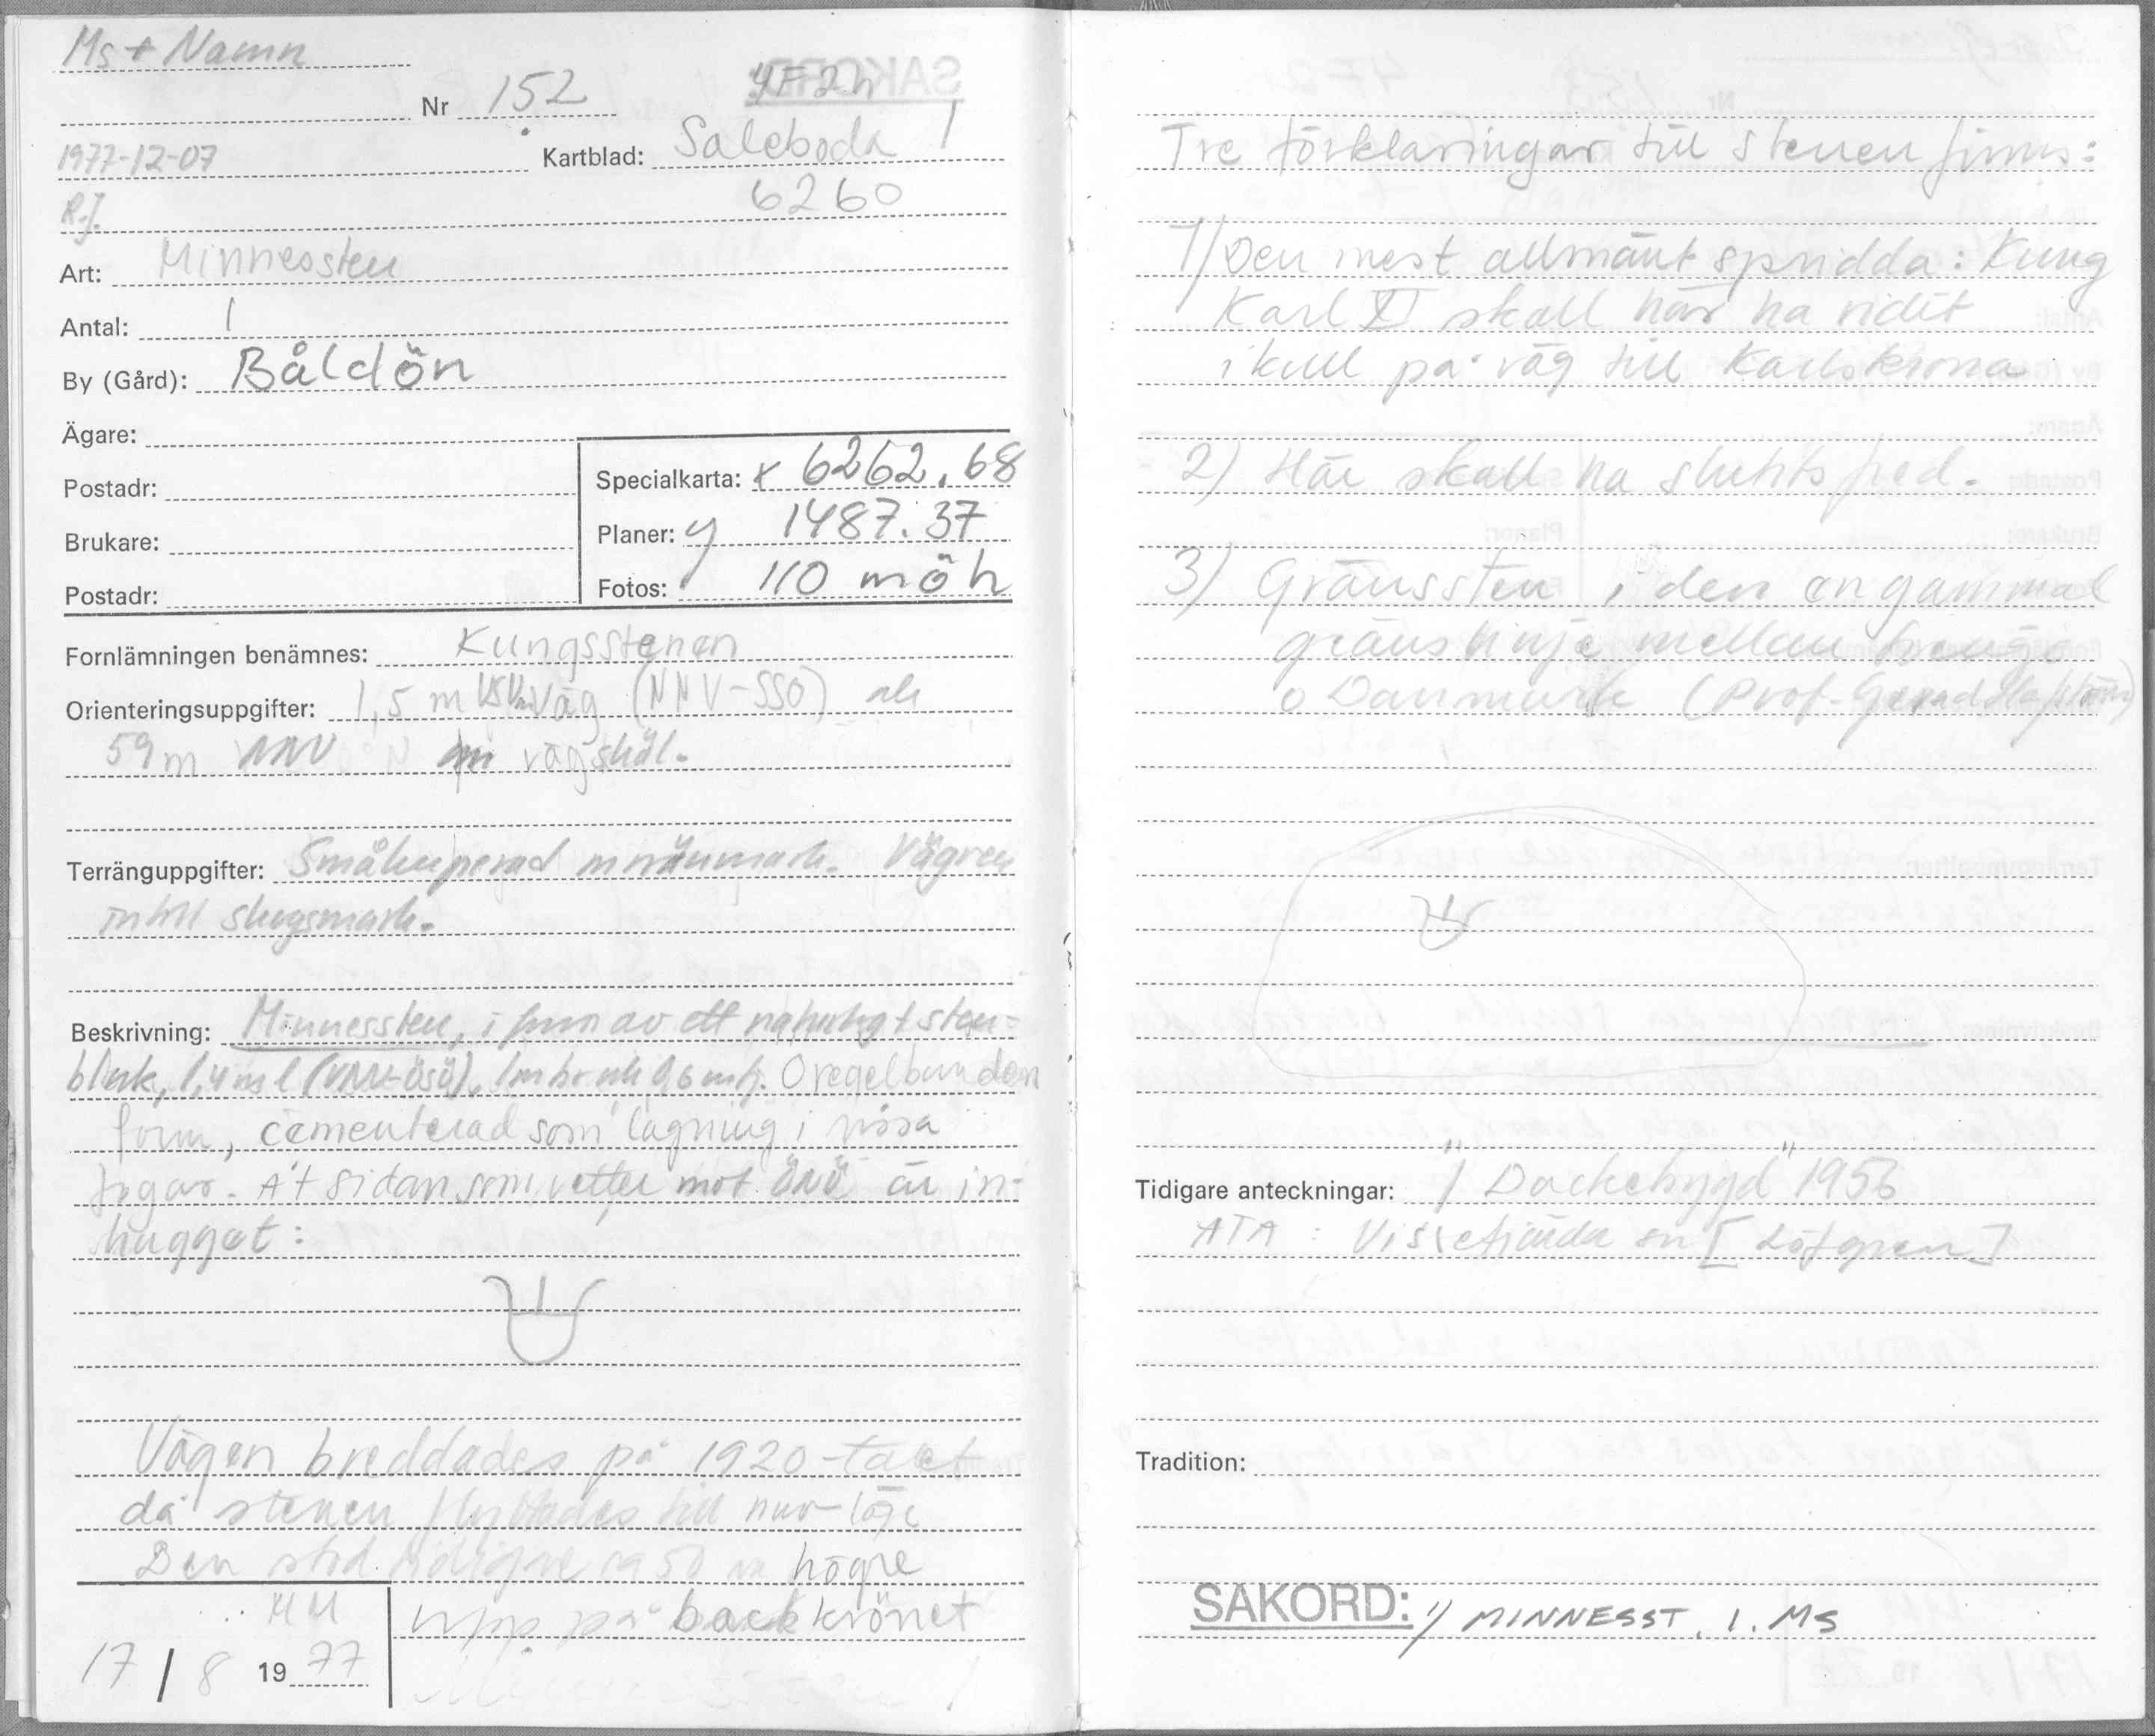 Ms + Namn
Nr 152 4F 2h
1977-12-07 Kartblad: Saleboda 1
R.J. 6260
Art: Minnessten
Antal: 1
By (Gård): Båldön
Ägare:
Postadr:
Specialkarta: x 6262.68
Brukare:
Planer: y 1487.37
Postadr:
Fotos: 110 möh
Fornlämningen benämnes: Kungsstenen
Orienteringsuppgifter: 1,5 m VSV om väg (NNV-SSO) och
59 m NNV om vägskäl.
Terränguppgifter: Småkuperad moränmark. Vägren
intill skogsmark.
Beskrivning: Minnessten, i form av ett naturligt sten-
block, 1,4 m l (VNV-ÖSÖ), 1 m br och 0,6 m h. Oregelbunden
form, cementerad som lagning i vissa
fogar. Åt sidan som vetter mot ÖNÖ är in-
hugget:
Vägen breddades på 1920-talet
då stenen flyttades till nuv läge
Den stod tidigare ca 50 m högre
upp på backkrönet
HM
17/8 1977
Tre förklaringar till stenen finns:
1/ Den mest allmänt spridda: Kung
Karl XI skall här ha ridit
ikull på väg till Karlskrona
2) Här skall ha slutits fred.
3) Gränssten i den en gammal
gränslinje mellan Sverige
o Danmark (Prof.
Tidigare anteckningar: 1/ "Dackebygd" 1956
ATA: Vissefjärda sn [Löfgren]
Tradition:
SAKORD: 1/ MINNESST, 1. MS